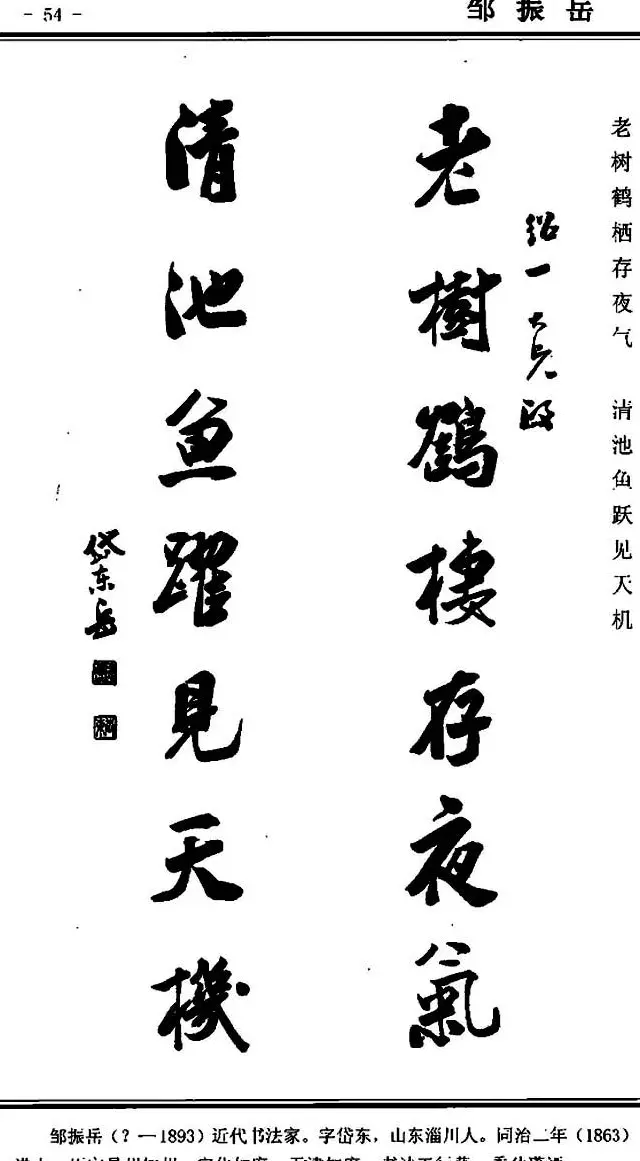 - 54 -
邹振岳
老树鹤栖存夜气 清池鱼跃见天机
绍一大兄政
老樹鶴棲存夜氣
清池魚躍見天機
岱东岳
邹振岳（？—1893）近代书法家。字岱东，山东淄川人。同治二年（1863）